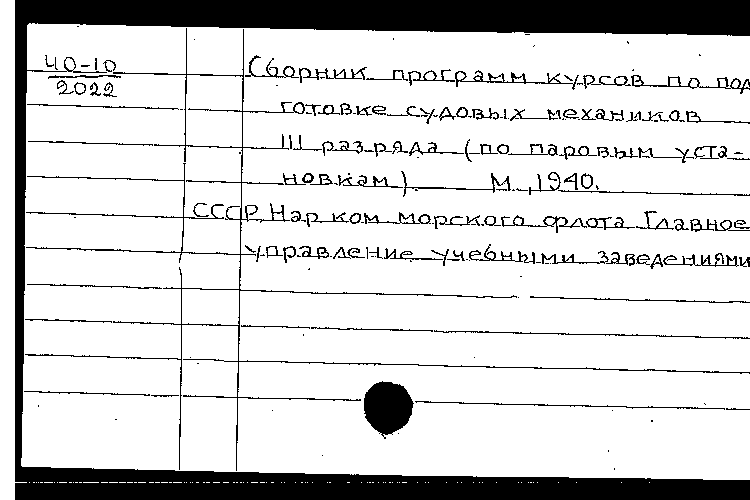 40-10
2022
Сборник программ курсов по под
готовке судовых механиков
III разряда (по паровым уста-
новкам) М.,1940.
СССР. Нар ком морского флота Главное
управление учебными заведениями